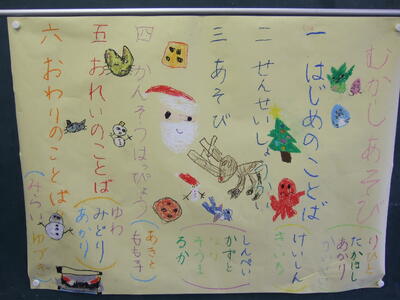 むかしあそび
一 はじめのことば
りひと
たかはし
あかり
二 せんせいしょうかい
けいしん
三 あそび
しんぺい
かずと
そうま
るか
四 かんそうはっぴょう
あきと
もも子
五 おれいのことば
ゆわ
みどり
あかり
六 おわりのことば
(みらい ゆづき)